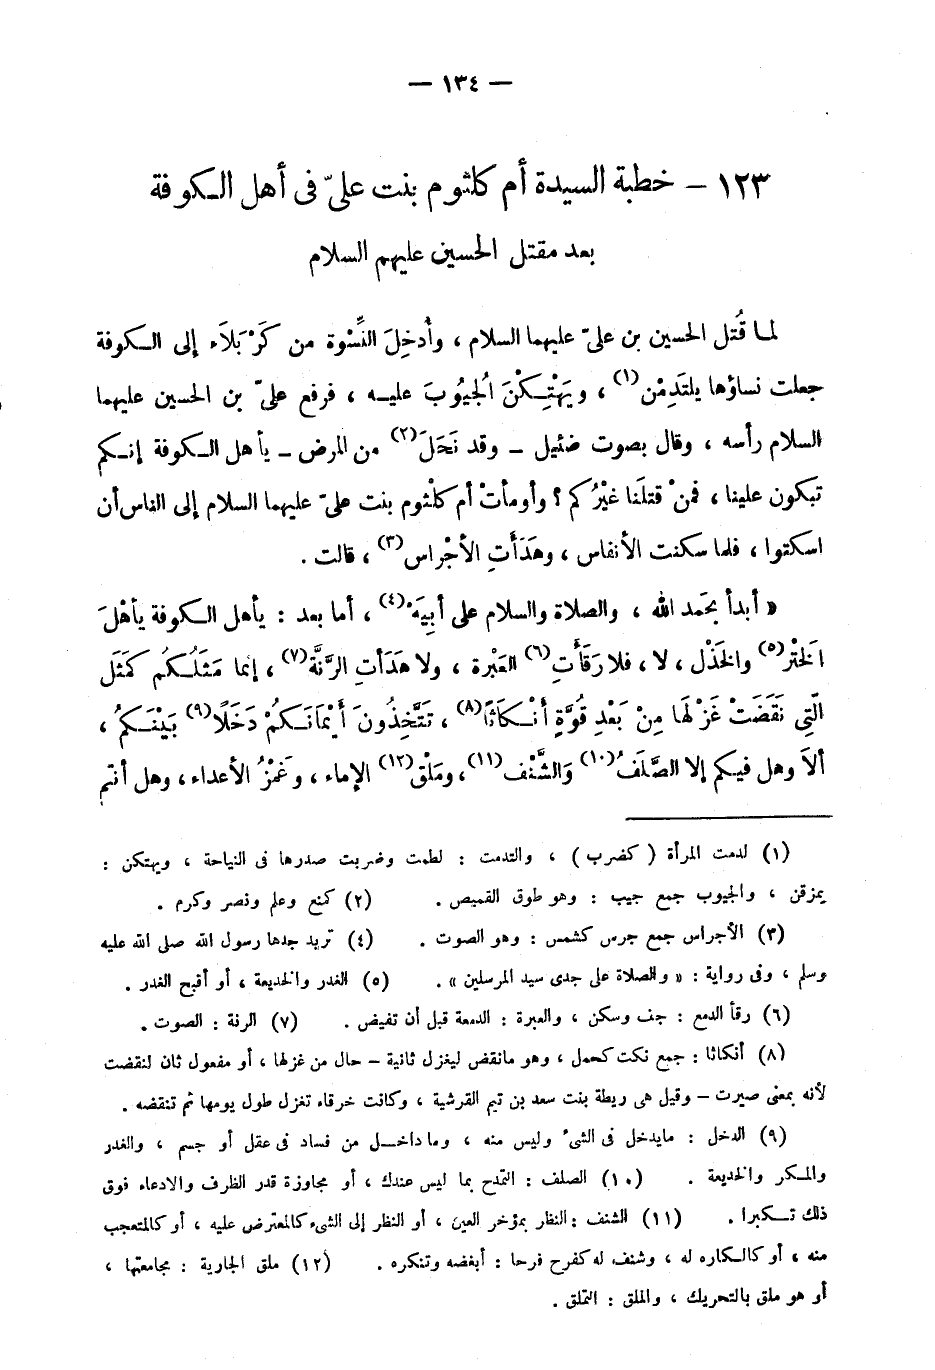 — ١٣٤ —
١٢٣ – خطبة السيدة أم كلثوم بنت علىّ فى أهل الكوفة
بعد مقتل الحسين عليهم السلام
لما قُتل الحسين بن علىّ عليهما السلام ، وأُدخِلَ النِّسْوة من كَرْبَلَاء إلى الكوفة
جعلت نساؤها يلتَدِمْن(١) ، ويَهْتِكْنَ الجيُوبَ عليه ، فرفع علىّ بن الحسين عليهما
السلام رأسه ، وقال بصوت ضئيل – وقد نَحَلَ(٢) من المرض – يأهل الكوفة إنكم
تبكون علينا ، فمنْ قتلَنا غيْرُكم ؟ وأومأتْ أم كلْثوم بنت علىّ عليهما السلام إلى الناس أن
اسكتوا ، فلما سكنت الأنفاس ، وهَدَأتِ الأجْراس(٣) ، قالت .
« أبدأ بحَمد الله ، والصلاة والسلام على أَبِيَهْ(٤) ، أما بعد : يأهل الكوفة يأهْلَ
الخَتْر(٥) والخَذْل ، لا ، فلا رَقَأَتِ(٦) العَبْرة ، ولا هَدَأتِ الرَّنَّة(٧) ، إنما مَثَلُكُم كَمَثَل
الَّتِى نَقَضَتْ غَزْلَهَا مِنْ بَعْدِ قُوَّةٍ أَنْكَاثًا(٨) ، تَتَّخِذُونَ أَيْمَانَكُمْ دَخَلًا(٩) بَيْنَكُمْ ،
ألاَ وهل فيكم إلا الصَّلَفُ(١٠) وَالشَّنْف(١١) ، ومَلْق(١٢) الإماء ، وغَمْزُ الأعداء ، وهل أنتم
(١) لدمت المرأة ( كضرب ) ، والتدمت : لطمت وضربت صدرها فى النياحة ، ويهتكن :
يمزقن ، والجيوب جمع جيب : وهو طوق القميص . (٢) كمنع وعلم ونصر وكرم .
(٣) الأجراس جمع جرس كشمس : وهو الصوت . (٤) تريد جدها رسول الله صلى الله عليه
وسلم ، وفى رواية : « والصلاة على جدى سيد المرسلين » . (٥) الغدر والخديعة ، أو أقبح الغدر .
(٦) رقأ الدمع : جف وسكن ، والعبرة : الدمعة قبل أن تفيض . (٧) الرنة : الصوت .
(٨) أنكاثا : جمع نكث كحمل ، وهو مانقض ليغزل ثانية – حال من غزلها ، أو مفعول ثان لنقضت
لأنه بمعنى صيرت – وقيل هى ريطة بنت سعد بن تيم القرشية ، وكانت خرقاء تغزل طول يومها ثم تنقضه .
(٩) الدخل : مايدخل فى الشىء وليس منه ، وماداخل من فساد فى عقل أو جسم ، والغدر
والمكر والخديعة . (١٠) الصلف : التمدح بما ليس عندك ، أو مجاوزة قدر الظرف والادعاء فوق
ذلك تكبرا . (١١) الشنف : النظر بمؤخر العين ، أو النظر إلى الشىء كالمعترض عليه ، أو كالمتعجب
منه ، أو كالكاره له ، وشنف له كفرح فرحا : أبغضه وتنكره . (١٢) ملق الجارية : مجامعتها ،
أو هو ملق بالتحريك ، والملق : التملق .